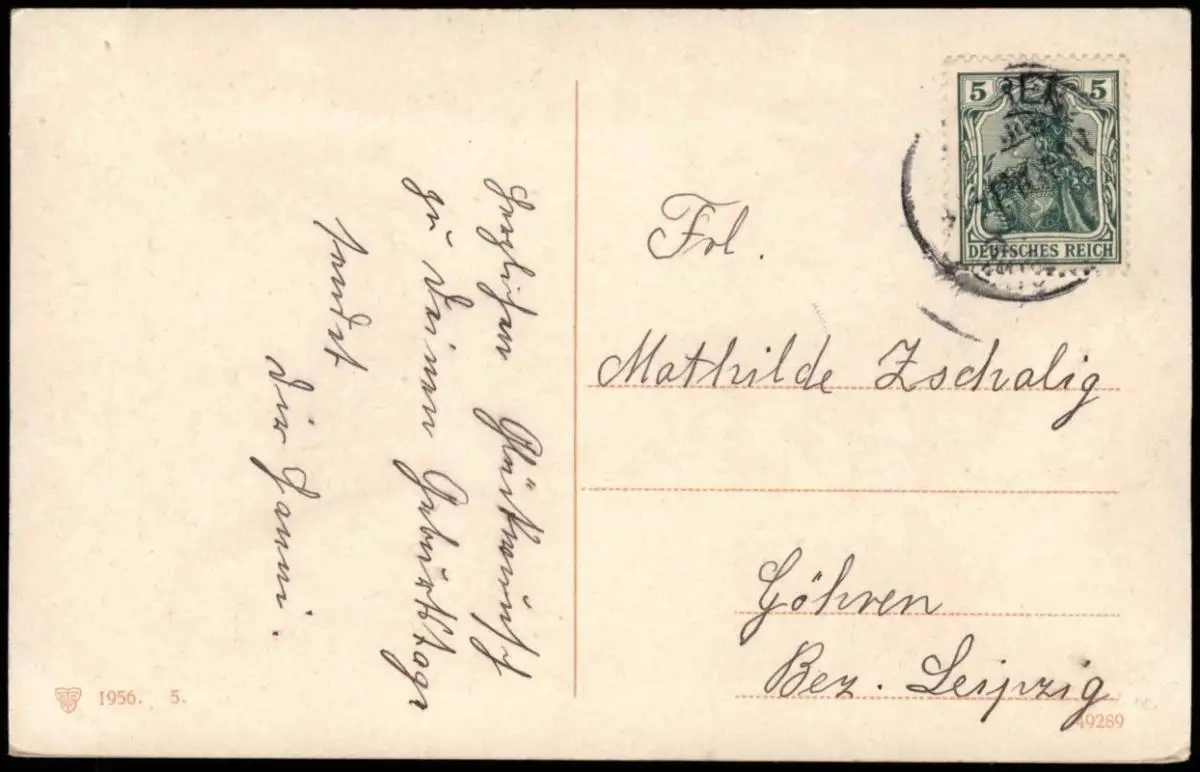 Herzlichen Glückwunsch
zu Deinem Geburtstage
sendet
Dir Hanni.
5 5
DEUTSCHES REICH
Frl.
Mathilde Zschalig
Göhren
Bez. Leipzig
1956. 5.
49289